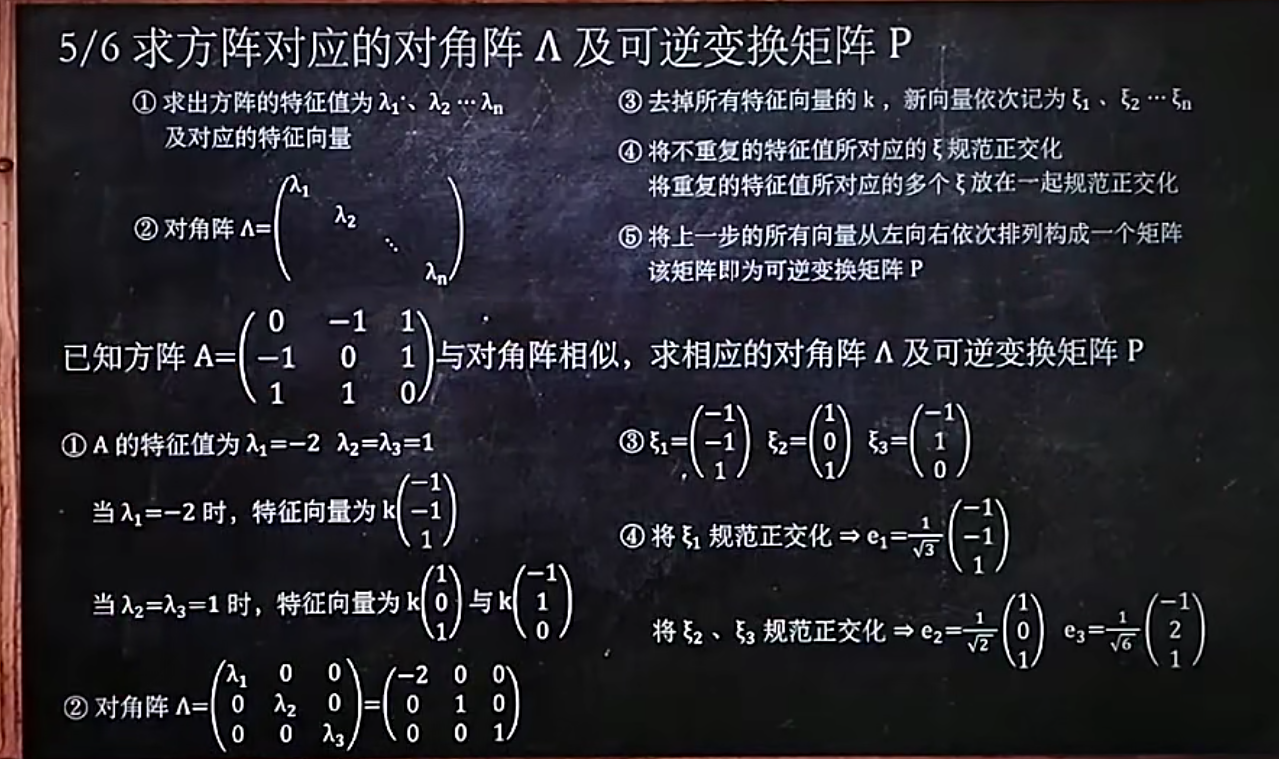 5/6 求方阵对应的对角阵 Λ 及可逆变换矩阵 P
① 求出方阵的特征值为 λ₁、λ₂ ⋯ λₙ
及对应的特征向量
② 对角阵 Λ=
λ₁
λ₂
⋱
λₙ
③ 去掉所有特征向量的 k ，新向量依次记为 ξ₁ 、ξ₂ ⋯ ξₙ
④ 将不重复的特征值所对应的 ξ 规范正交化
将重复的特征值所对应的多个 ξ 放在一起规范正交化
⑤ 将上一步的所有向量从左向右依次排列构成一个矩阵
该矩阵即为可逆变换矩阵 P
0 −1 1
已知方阵 A= −1 0 1 与对角阵相似，求相应的对角阵 Λ 及可逆变换矩阵 P
1 1 0
① A 的特征值为 λ₁=−2 λ₂=λ₃=1
−1
当 λ₁=−2 时，特征向量为 k −1
1
1 −1
当 λ₂=λ₃=1 时，特征向量为 k 0 与 k 1
1 0
λ₁ 0 0 −2 0 0
② 对角阵 Λ= 0 λ₂ 0 = 0 1 0
0 0 λ₃ 0 0 1
−1 1 −1
③ ξ₁= −1 ξ₂= 0 ξ₃= 1
1 1 0
−1
④ 将 ξ₁ 规范正交化 ⇒ e₁= 1/√3 −1
1
1 −1
将 ξ₂ 、ξ₃ 规范正交化 ⇒ e₂= 1/√2 0 e₃= 1/√6 2
1 1